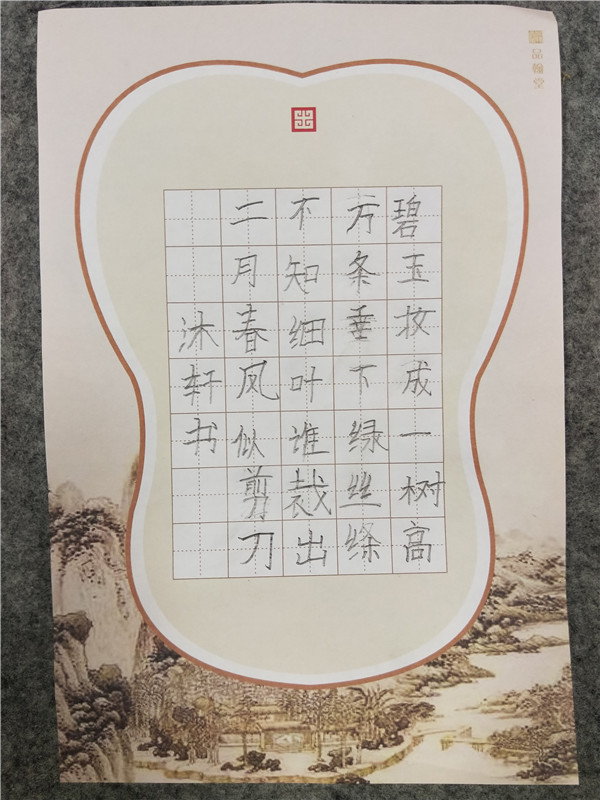 品翰堂
碧玉妆成一树高
方条垂下绿丝绦
不知细叶谁裁出
二月春风似剪刀
沐轩书